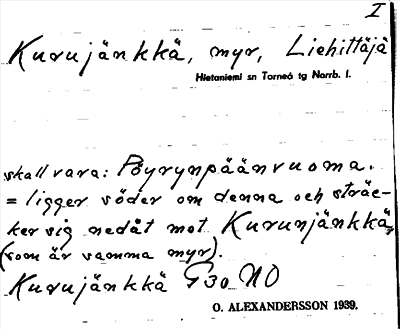 I
Kurujänkkä, myr, Liehittäjä
Hietaniemi sn Torneå tg Norrb. l.
skall vara: Pöyrynpäänvuoma.
= ligger söder om denna och sträc-
ker sig nedåt mot Kurunjänkkä,
(som är samma myr).
Kurujänkkä G30 NO
O. ALEXANDERSSON 1939.